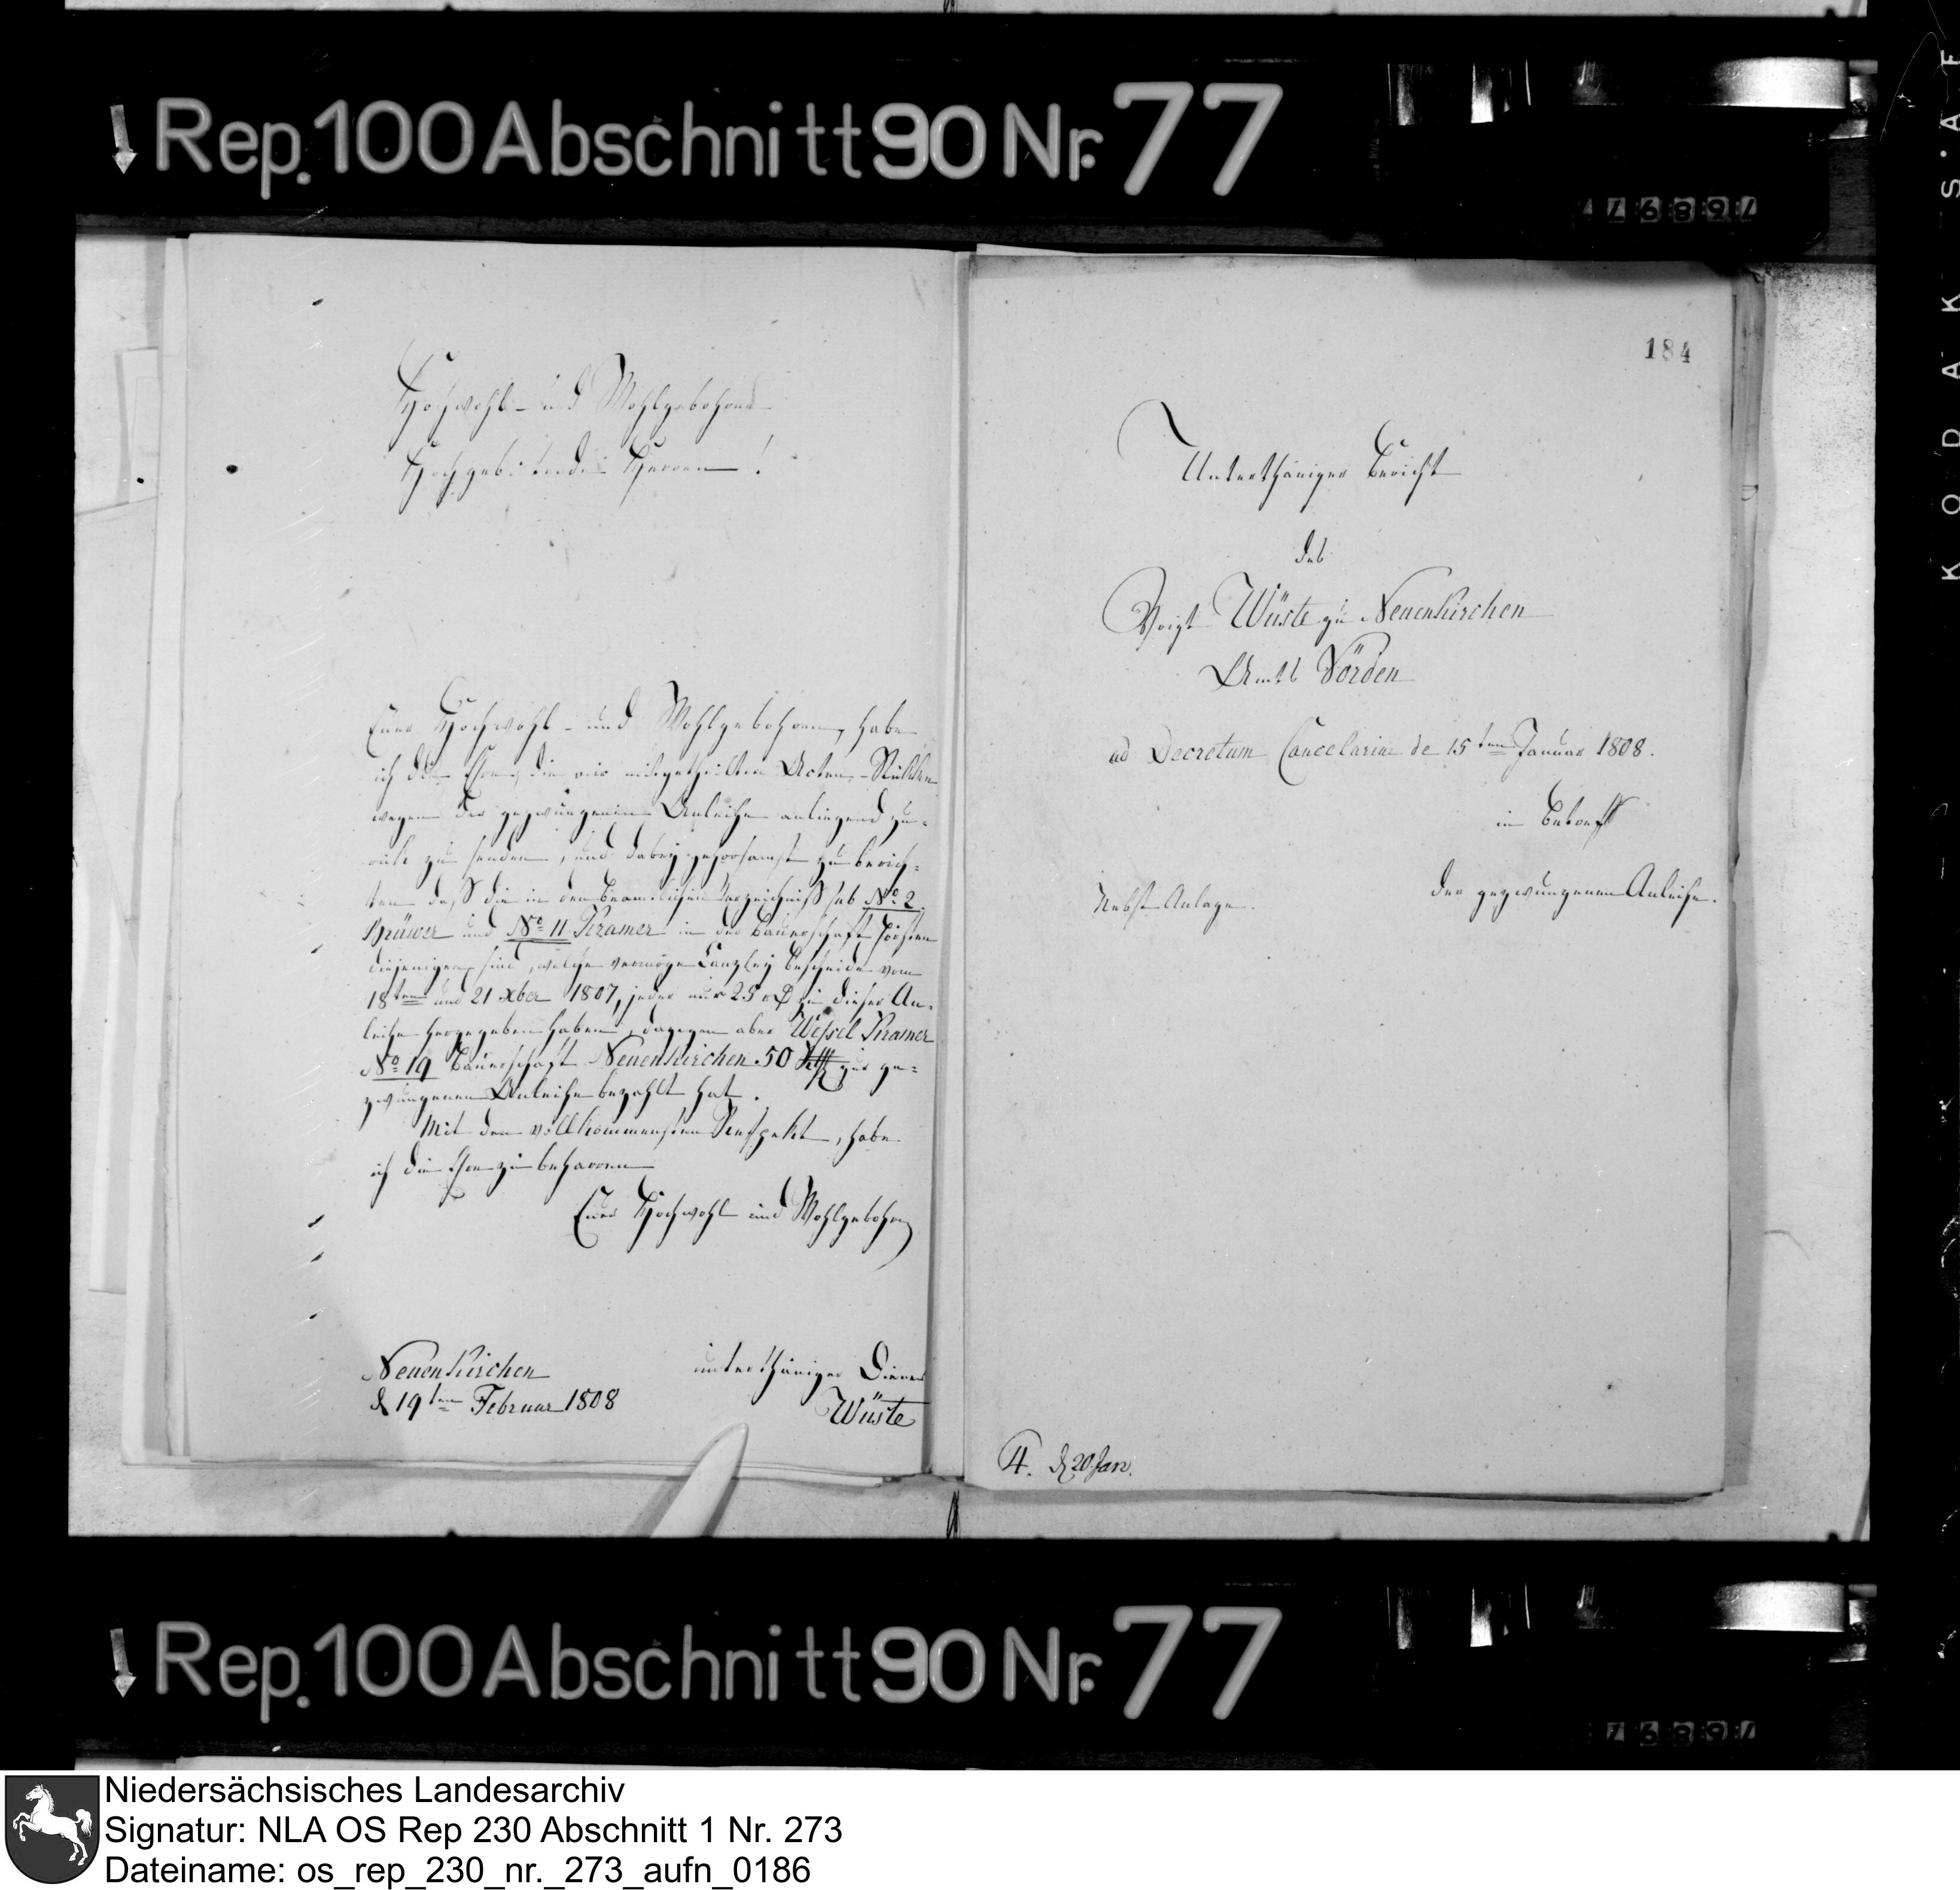 Rep. 100 Abschnitt 90 Nr. 77
76897
Hochwohl- und Wohlgebohrne
Hochgebietende Herren!
Euer Hochwohl- und Wohlgebohren, habe
ich die Ehre, die mir mitgetheilten Acten-Stükken
wegen der gezwungenen Anleihe anliegend zu-
rük zu senden, und dabey gehorsamst zu berich-
ten daß die in den Verzeichniß sub No 2
Brüwer und No 11 Kramer in der Bauerschaft Hörsten
diejenigen sind, welche vermöge Canzley Bescheide vom
18ten und 21 xber 1807, jeder nur 25 rD zu dieser An-
leihe hergegeben haben, dagegen aber Wessel Kramer
No 19 Bauerschaft Neuenkirchen 50 zur ge-
zwungenen Anleihe bezahlt hat.
Mit den vollkommensten Respekt, habe
ich die Ehre zu beharren
Euer Hochwohl und Wohlgebohren
Neuenkirchen
d 19ten Februar 1808
unterthäniger Diener
Wüste
184
Unterthäniger Bericht
des
Voigt Wüste zu Neuenkirchen
Amts Vörden
ad Decretum Cancelariae de 15ten Januar 1808.
in betreff
der gezwungenen Anleihe.
Nebst Anlage.
H. d 20 Jan.
Rep. 100 Abschnitt 90 Nr. 77
76897
KODAK S.A.F
Niedersächsisches Landesarchiv
Signatur: NLA OS Rep 230 Abschnitt 1 Nr. 273
Dateiname: os_rep_230_nr._273_aufn_0186